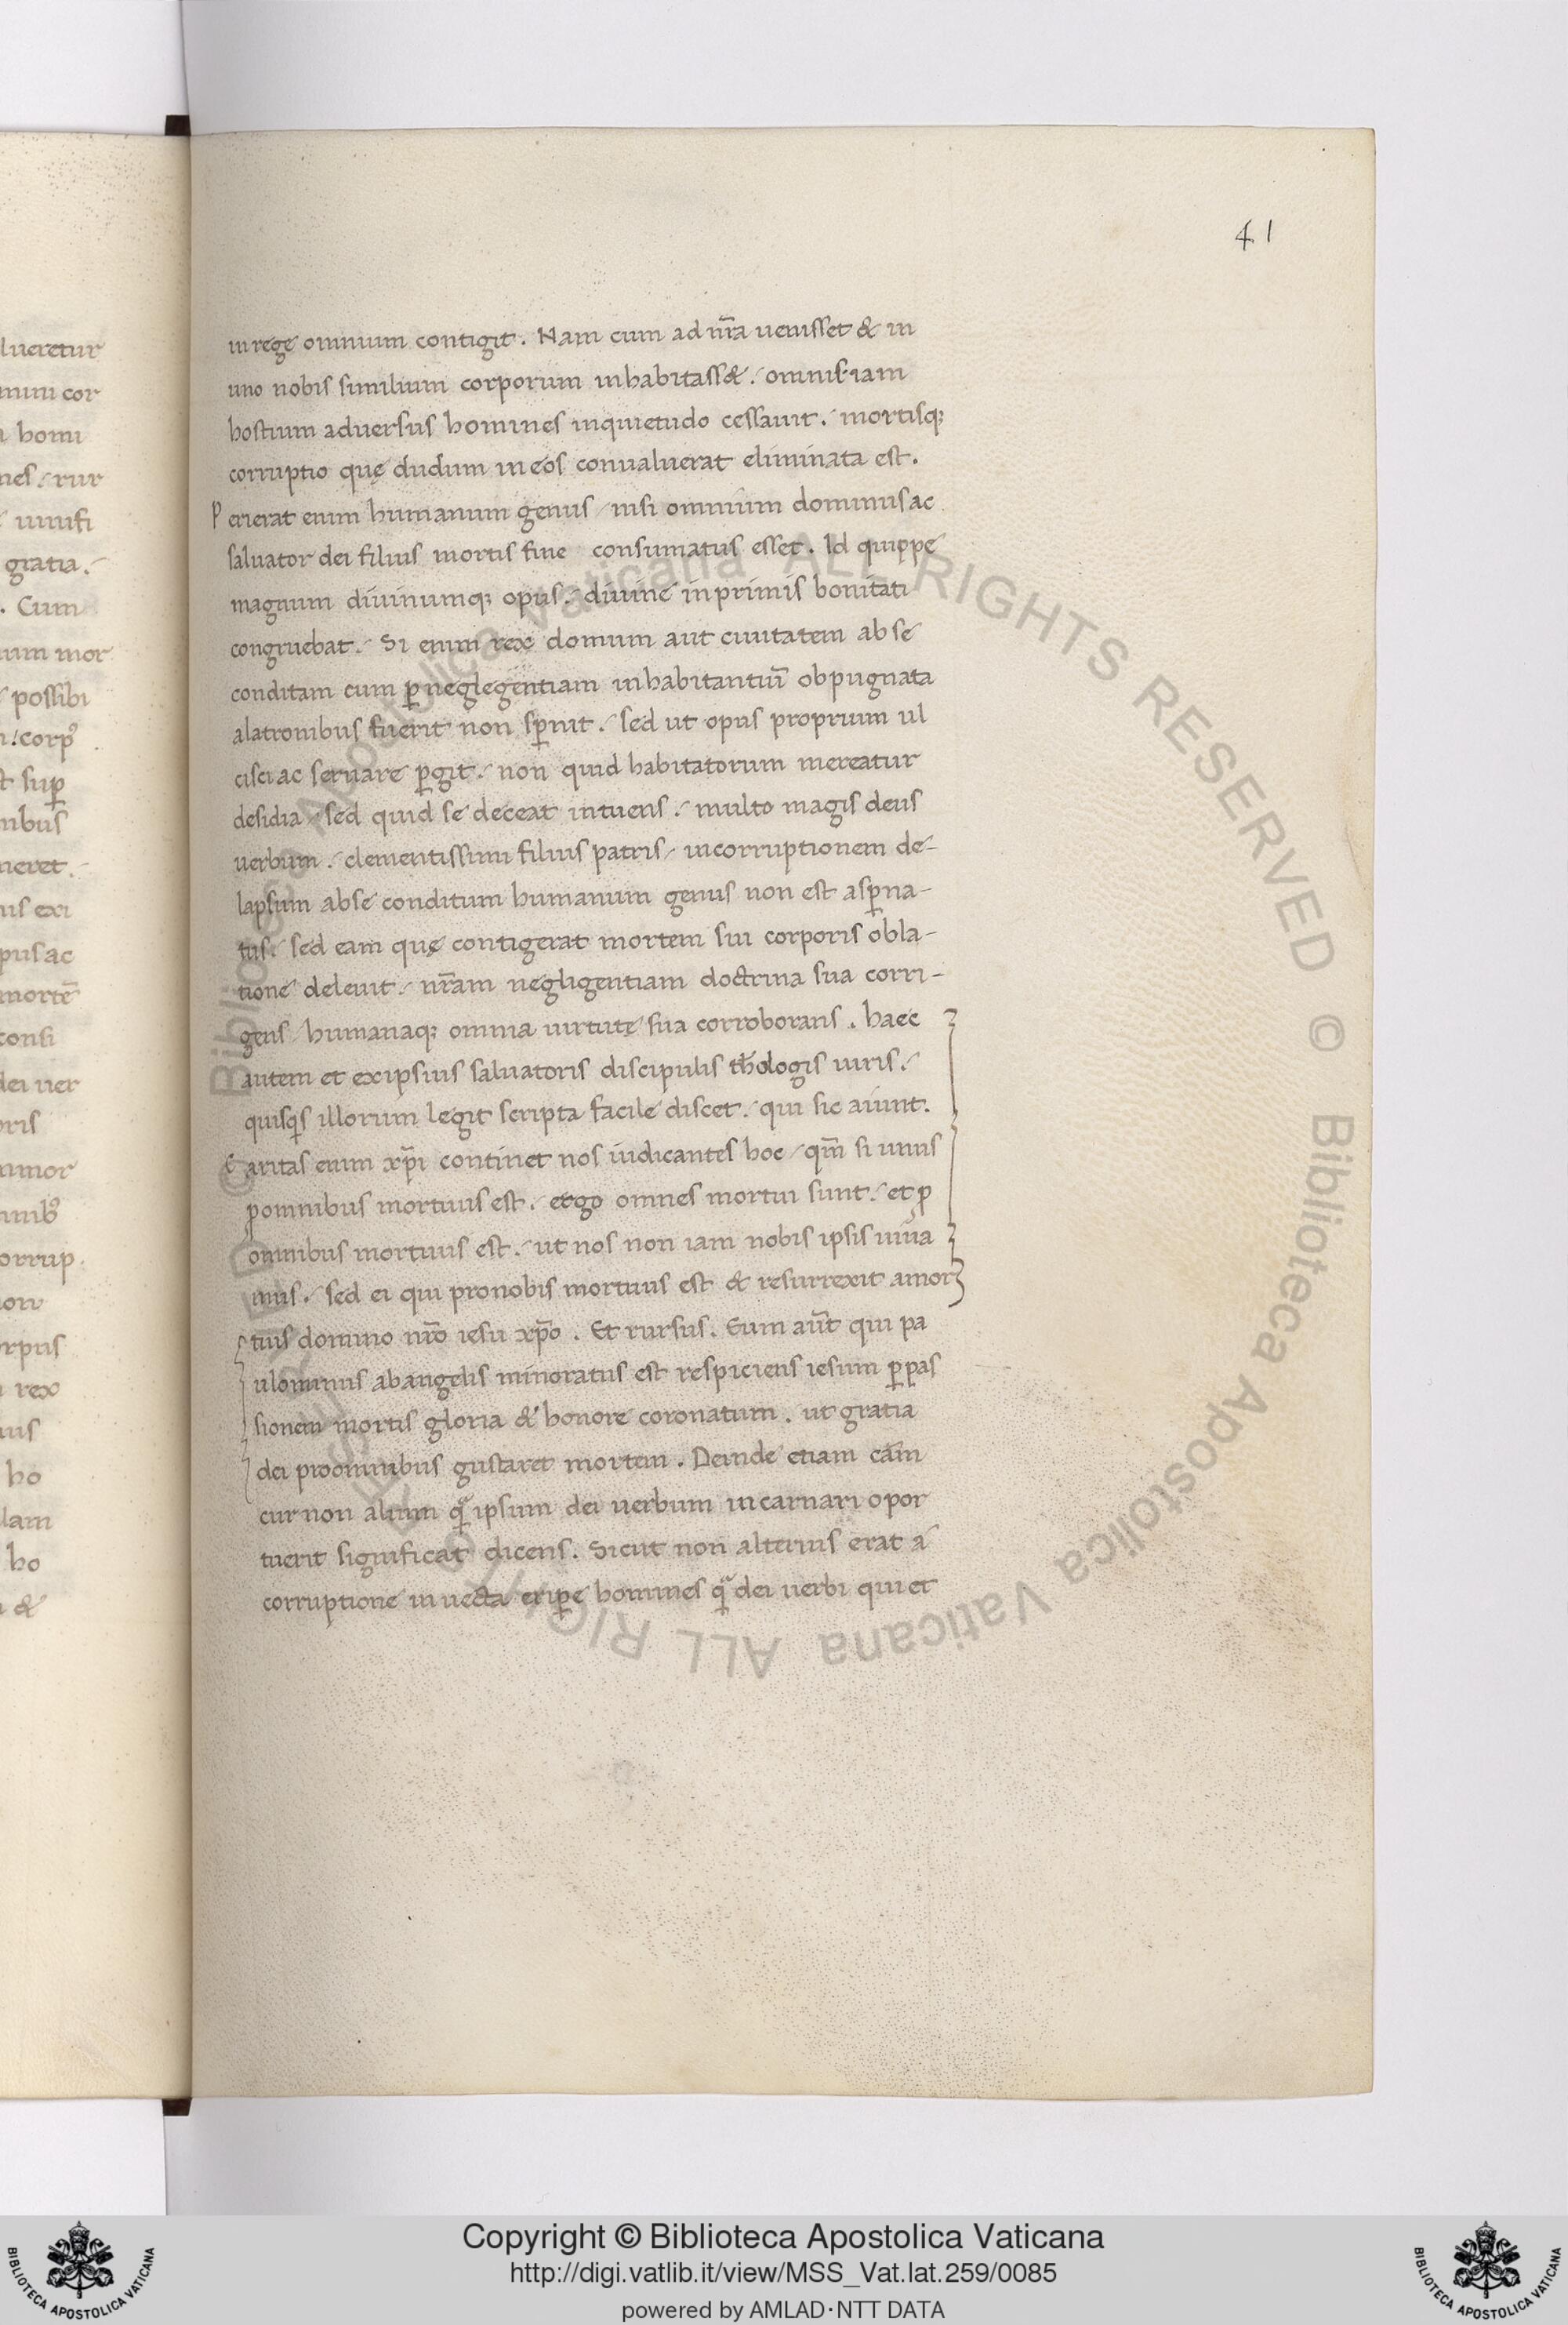 41
lueretur
mini cor
a homi
nes / rur
unifi
gratia ./
. Cum
ium mor
/ possibi
n ! corpꝰ
t suꝑ
nibus
neret ./
us exi
pus ac
mortē
consi
dei uer
oris
mmor
nnibꝰ
orrup
rpus
rex
uis
ho
dam
ho
a &
in rege omnium contigit . Nam cum ad nr̄a uenisset & in
uno nobis similium corporum inhabitass& ./ omnis iam
hostium aduersus homines inquietudo cessauit ./ mortisq;
corruptio quę dudum in eos conualuerat eliminata est .
P erierat enim humanum genus / nisi omnium dominus ac
saluator dei filius mortis fine consumatus esset . Id quippe
magnum diuinumq; opus ./ diuine inprimis bonitati
congruebat ./ Si enim rex domum aut ciuitatem ab se
conditam cum ꝑ neglegentiam inhabitantiū obpugnata
alatronibus fuerit non sꝑnit ./ sed ut opus proprium ul
cisci ac seruare ꝑgit ./ non quid habitatorum mereatur
desidia / sed quid se deceat intuens ./ multo magis deus
uerbum ./ clementissimi filius patris / incorruptionem de-
lapsum abse conditum humanum genus non est asꝑna-
tus / sed eam quę contigerat mortem sui corporis obla-
tione deleuit ./ nr̄am negligentiam doctrina sua corri-
gens / humanaq; omnia uirtute sua corroborans . haec
autem et exipsius saluatoris discipulis theologis uiris ./
quisq̄s illorum legit scripta facile discet ./ qui sic aiunt .
C aritas enim xp̄i continet nos iudicantes hoc / qm̄ si unus
ꝓomnibus mortuus est ./ ergo omnes mortui sunt ./ et ꝓ
omnibus mortuus est ./ ut nos non iam nobis ipsis uiua
mus ./ sed ei qui pronobis mortuus est & resurrexit amor
tuis domino nr̄o iesu xp̄o . Et rursus . Eum aūt qui pa
ulominus abangelis minoratus est respiciens iesum ꝑpas
sionem mortis gloria & honore coronatum . ut gratia
dei proomnibus gustaret mortem . Deinde etiam cām
cur non alium q̄ ipsum dei uerbum incarnari opor
tuerit significat dicens . Sicut non alterius erat a
corruptione inuecta eriꝑe homines q̄ dei uerbi qui et
© Biblioteca Apostolica Vaticana ALL RIGHTS RESERVED © Biblioteca Apostolica Vaticana ALL RIGHTS RESERVED
Copyright © Biblioteca Apostolica Vaticana
http://digi.vatlib.it/view/MSS_Vat.lat.259/0085
powered by AMLAD·NTT DATA
BIBLIOTECA APOSTOLICA VATICANA
BIBLIOTECA APOSTOLICA VATICANA